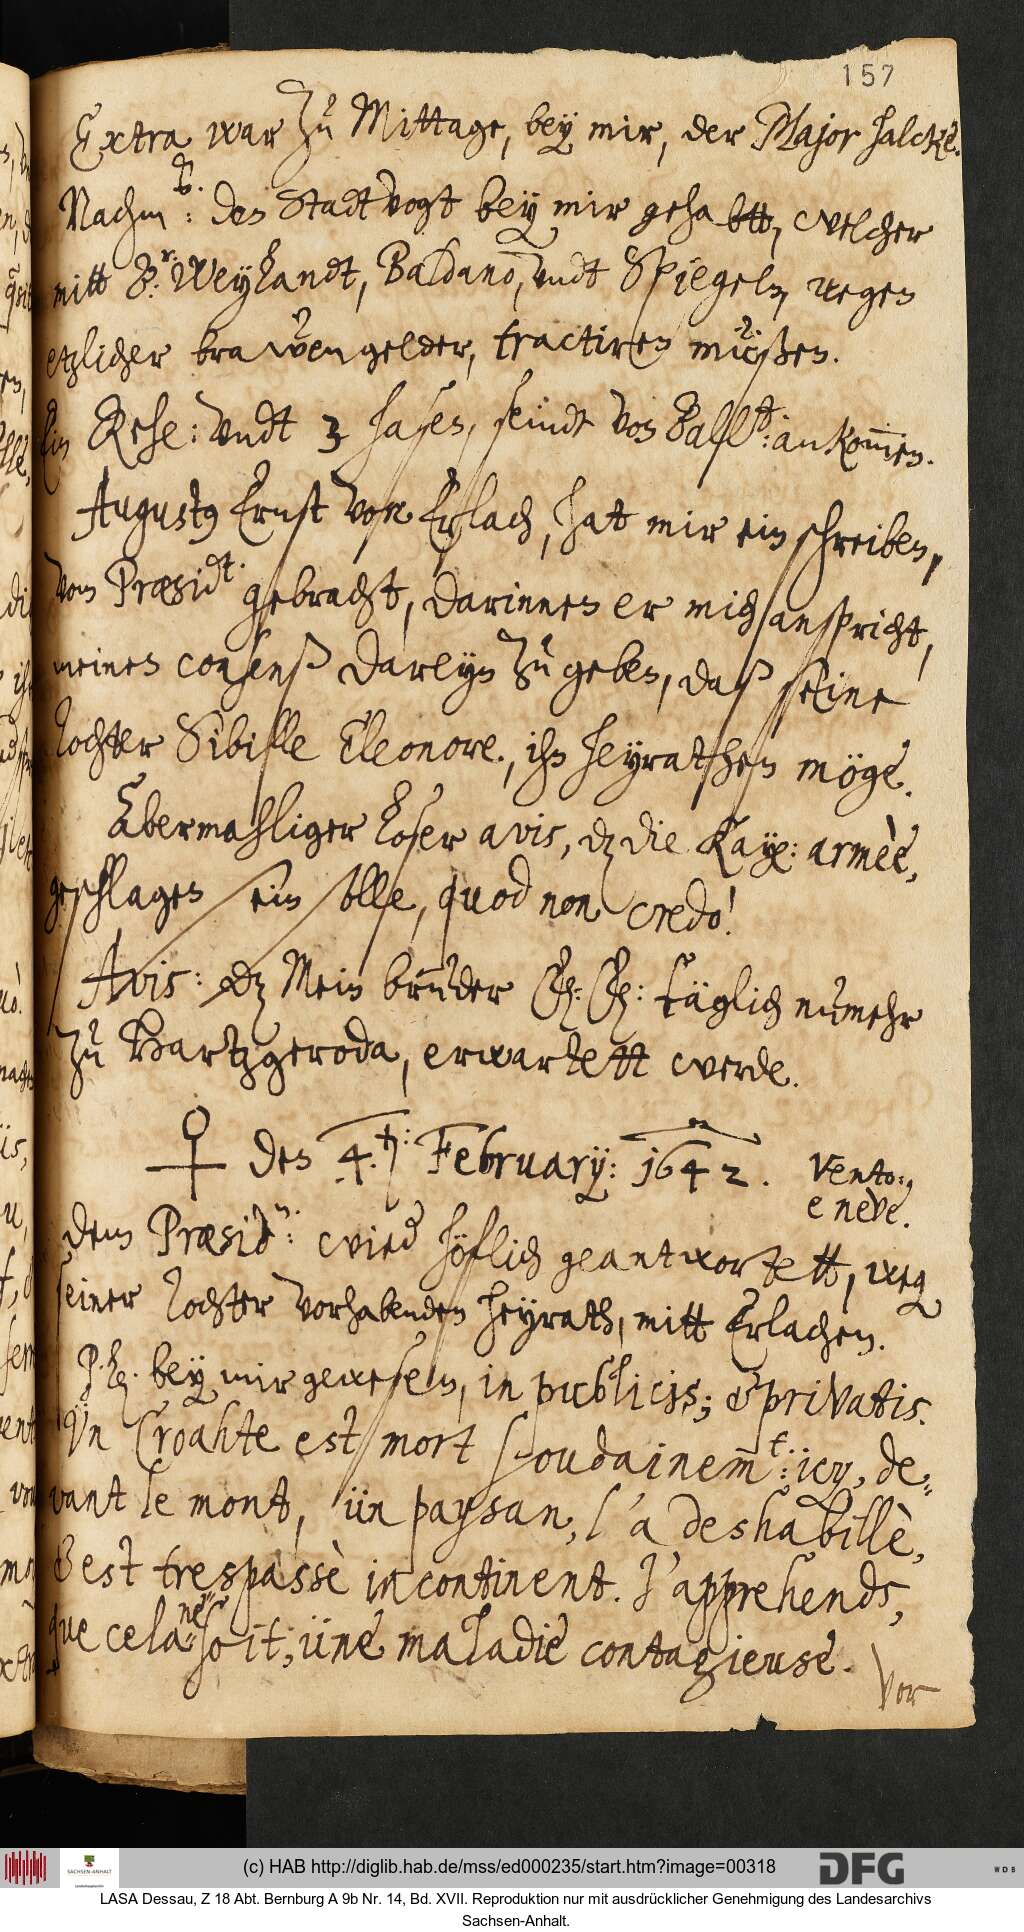 157
Extra war zu Mittage, bey mir, der Major Halcke.
Nachm: des Stadtvogt bey mir gehabtt, welcher
mitt D.r Weylandt, Baldano, undt Spiegeln, wegen
etzlicher brawengelder, tractiren müßen.
Ein Rehe: undt 3 hasen, seindt von Ball:d ankommen.
Augustus Ernst von Erlach, hat mir ein schreiben,
vom Præsidt. gebracht, darinnen er mich anspricht,
meinen consenß dareyn zu geben, daß seine
Tochter Sibille Eleonore., ihn heyrathen möge.
Abermahliger loser avis, dz die Kay: armèe,
geschlagen sein solle, quod non credo!
Avis: dz Mein bruder F: F: täglich numehr
zu Hartzgeroda, erwartett werde.
♀ den 4.t: February: 1642. Vento:,
e neve.
Dem Præsid:n. wird höflich geantwortett, weg
seiner Tochter vorhabenden heyrath, mitt Erlachen.
P. E. bey mir gewesen, in publicis; & privatis.
Un Croahte est mort soudainem:t icy, de=
vant le mont, ün paysan, l'a deshabillè,
& est trespassè incontinent. J'apprehends,
que cela ne soit, üne maladie contagieuse.
Vor
(c) HAB http://diglib.hab.de/mss/ed000235/start.htm?image=00318
SACHSEN-ANHALT
DFG
WDB
LASA Dessau, Z 18 Abt. Bernburg A 9b Nr. 14, Bd. XVII. Reproduktion nur mit ausdrücklicher Genehmigung des Landesarchivs
Sachsen-Anhalt.